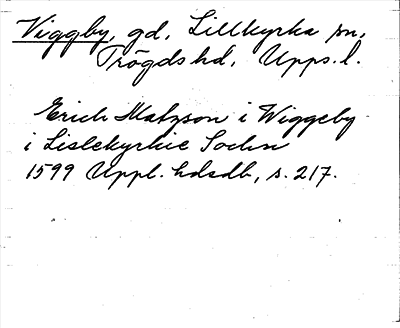 Viggby, gd, Lillkyrka sn,
Trögds hd, Upps. l.
Erich Matzson i Wiggeby
i Lislekyrkie Sochn
1599 Uppl. hdsdb, s. 217.